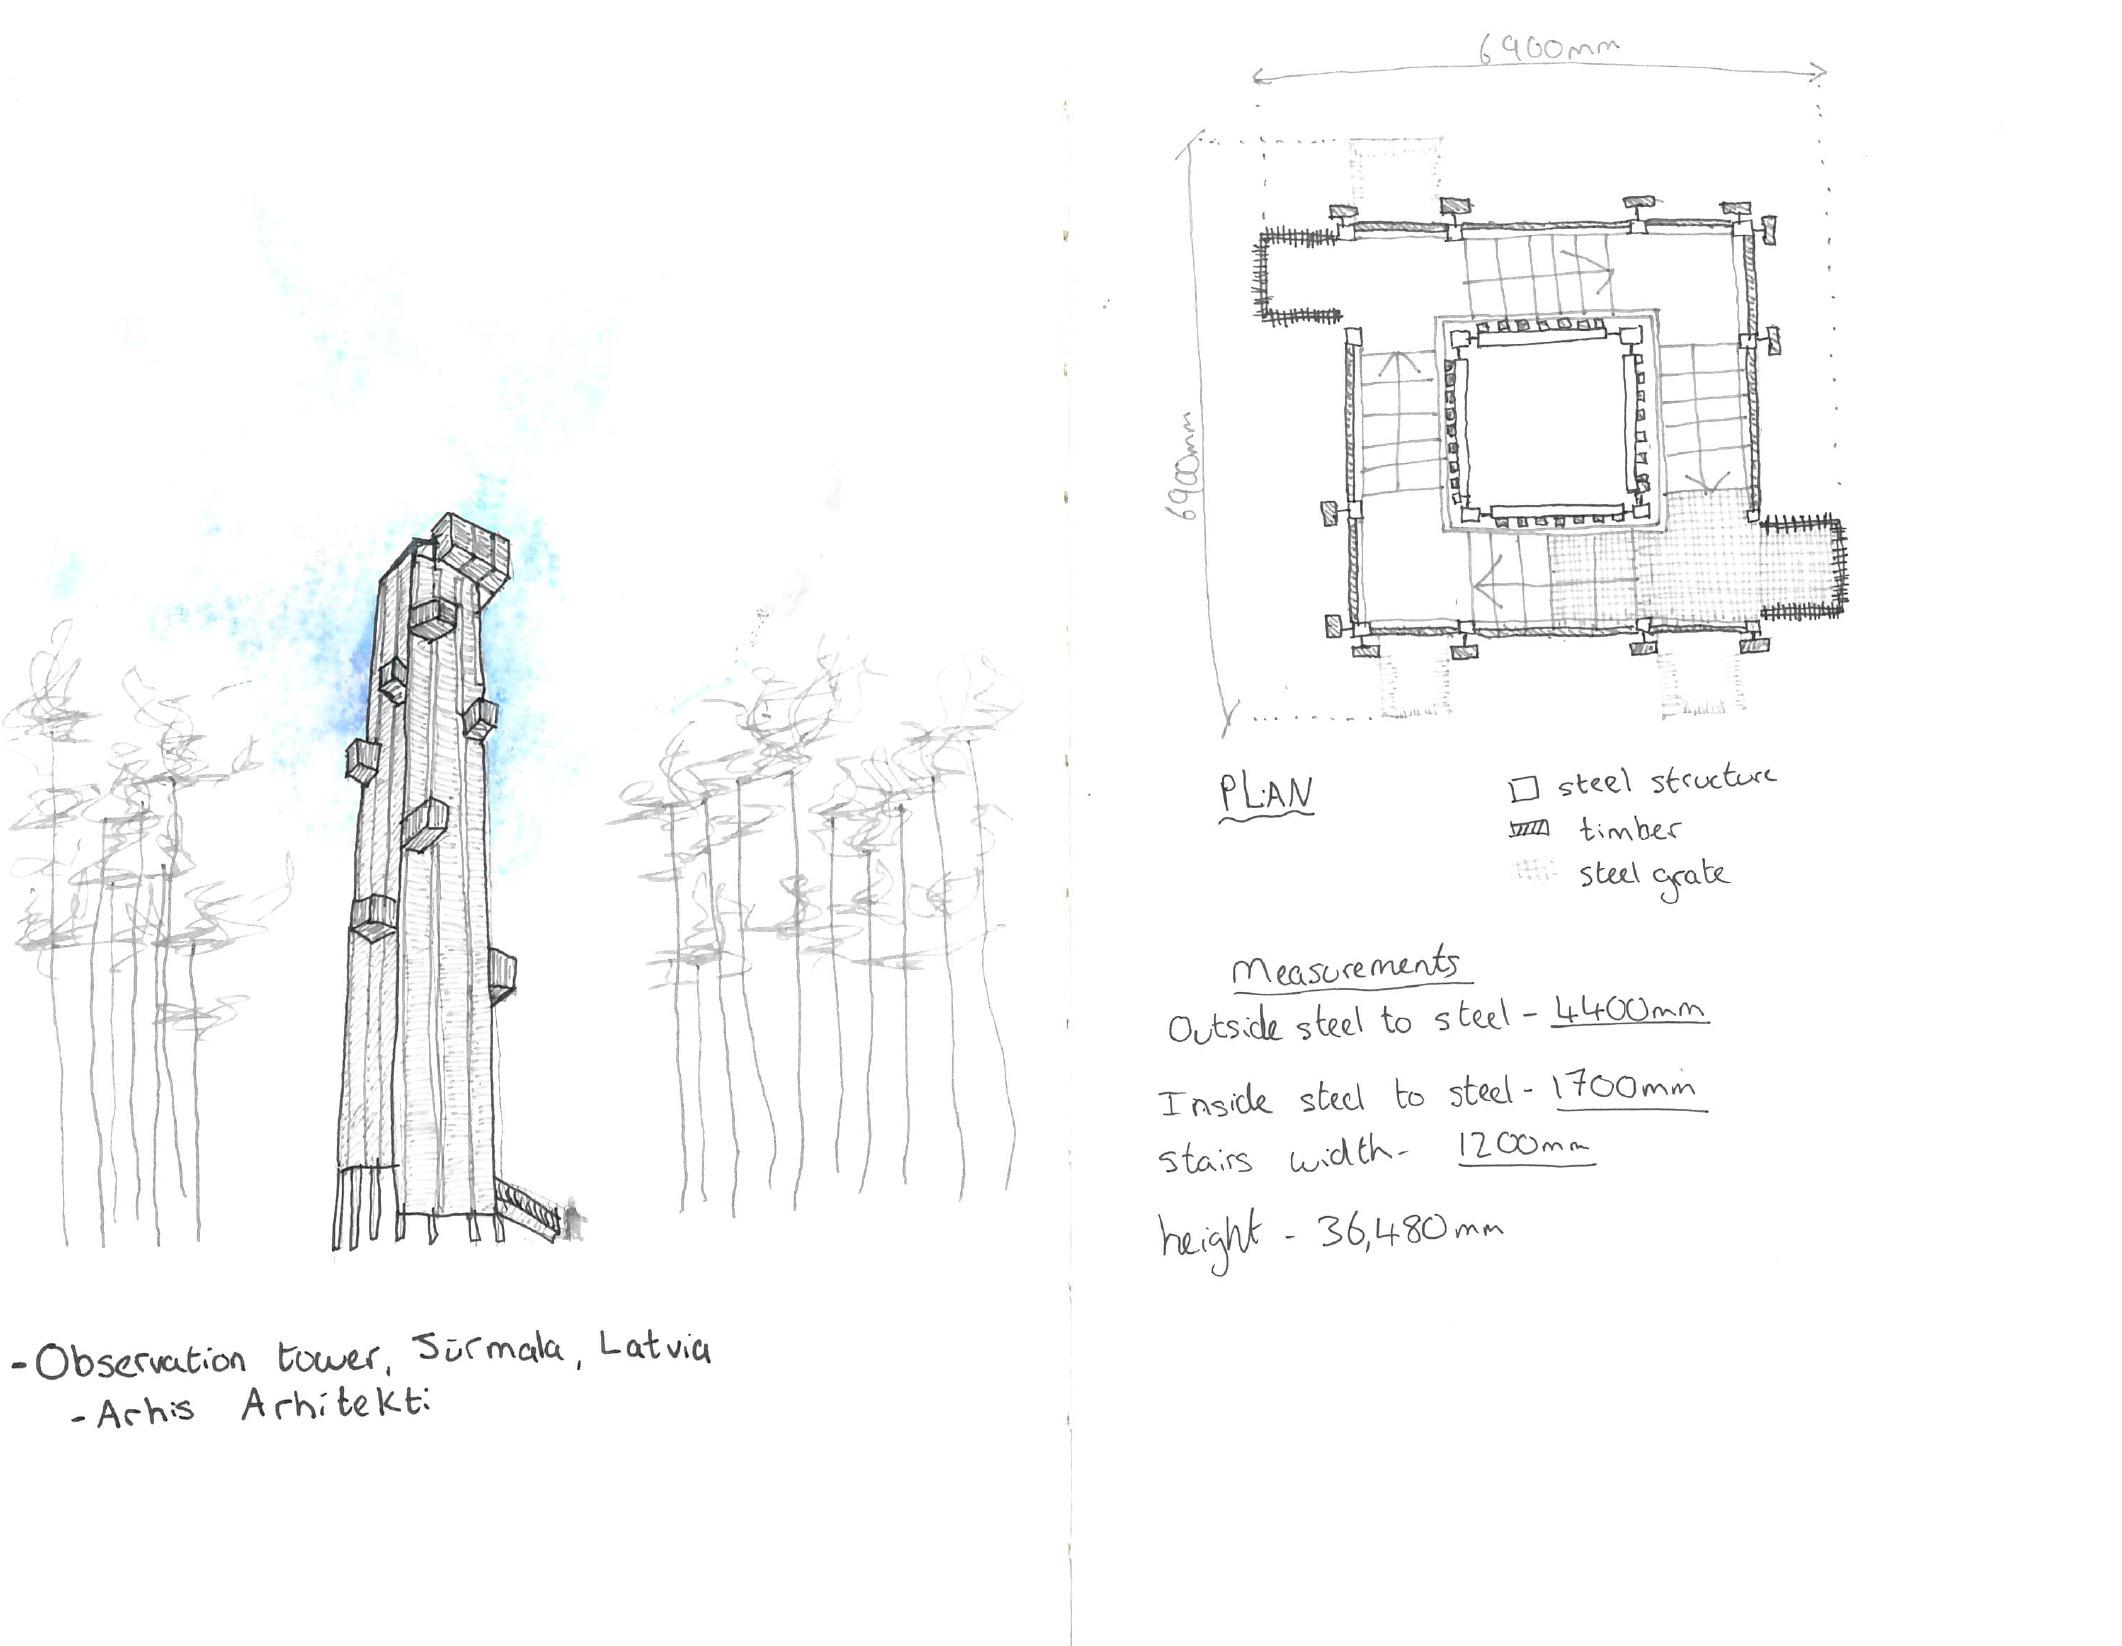 - Observation tower, Jūrmala, Latvia
- Arhis Arhitekti
6900mm
6900mm
PLAN
steel structure
timber
steel grate
Measurements
Outside steel to steel - 4400mm
Inside steel to steel - 1700mm
stairs width - 1200mm
height - 36,480mm